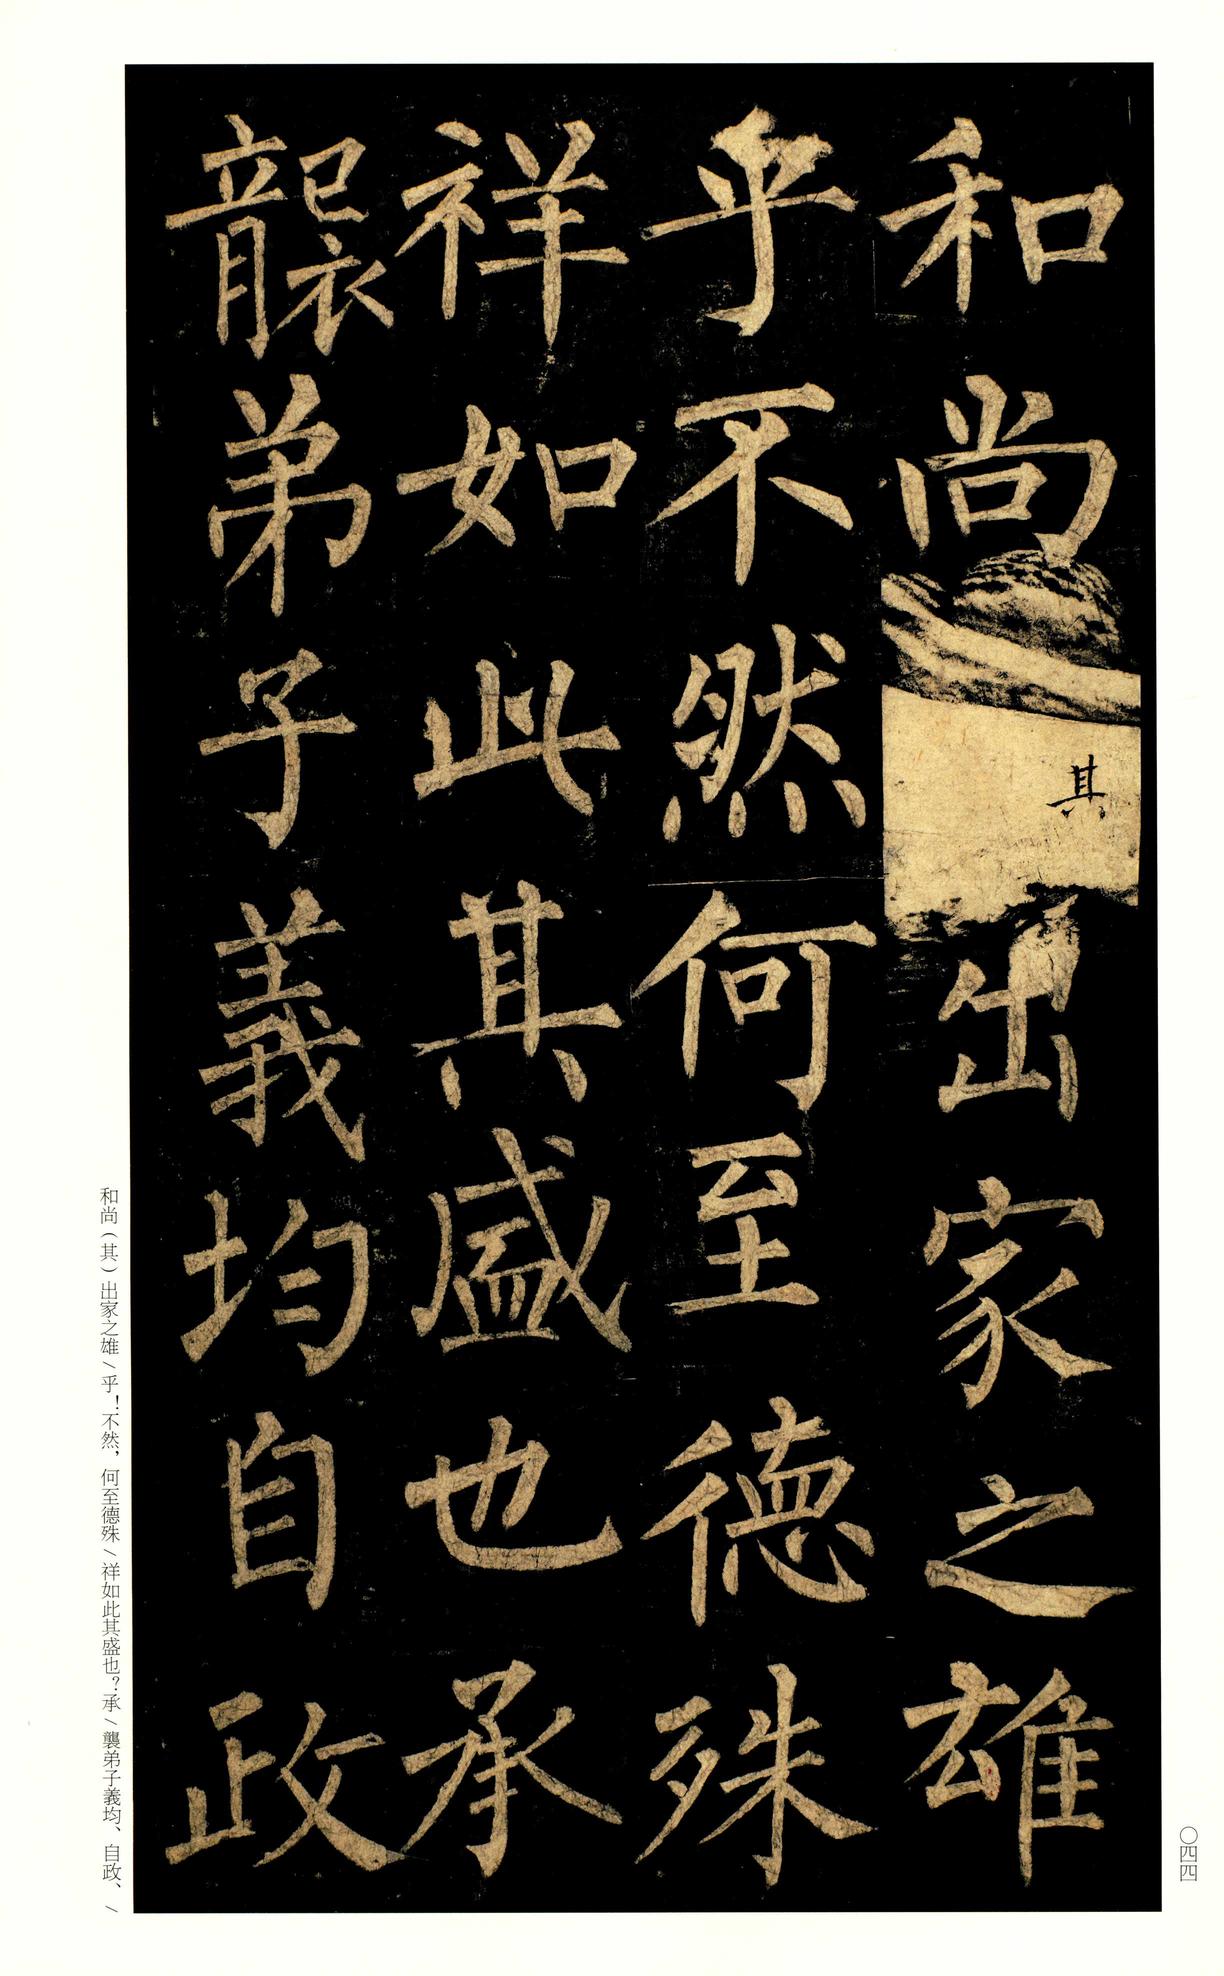 和尚其出家之雄
乎不然何至德殊
祥如此其盛也承
襲弟子義均自政
和尚（其）出家之雄／乎！不然，何至德殊／祥如此其盛也？承／襲弟子義均、自政、／
〇四四